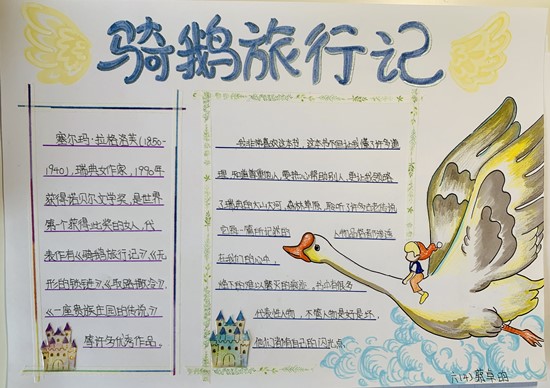 骑鹅旅行记
塞尔玛·拉格洛芙(1850-
1940),瑞典女作家,1990年
获得诺贝尔文学奖,是世界
第一个获得此奖的女人,代
表作有《骑鹅旅行记》,《无
形的锁链》,《
《一座贵族庄园的传说》
等许多优秀作品。
我非常喜欢这本书,这本书不但让我懂了许多道
理,知道尊重他人,要热心帮助别人,更让我领略
了瑞典的大山大河,森林草原,聆听了许多古老传说
它就
人物品格都深透
在我们的心中,
留下的难以磨灭的痕迹,书中有很多
代表性人物,不管人物是好是坏,
他们都有自己的闪光点
六(4)蔡卓